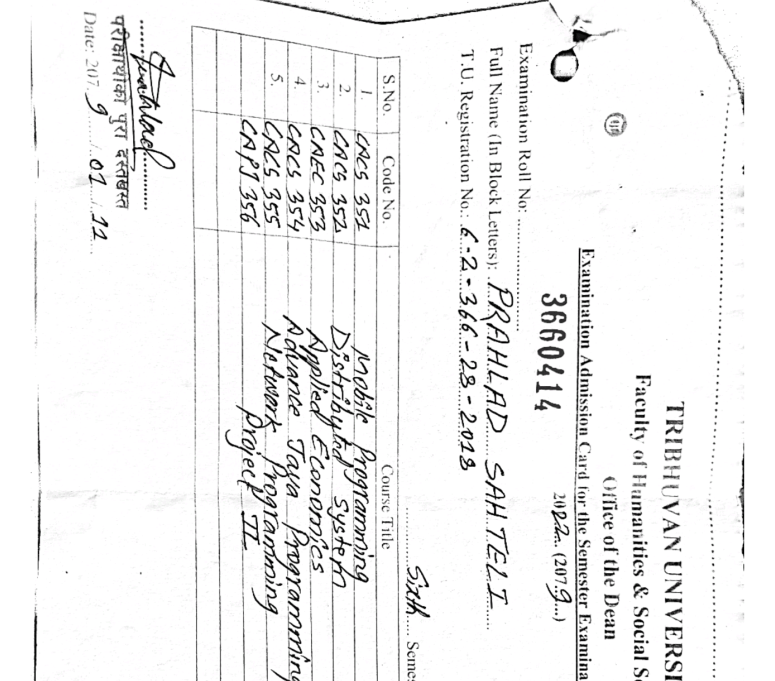 TRIBHUVAN UNIVERSI
Faculty of Humanities & Social S
Office of the Dean
Examination Admission Card for the Semester Examina
2022 (2079)
3660414
Examination Roll No:
Full Name (In Block Letters): PRAHLAD SAHTELI
T.U. Registration No.: 6-2-366-28-2018
Sixth Semes
S.No. Code No. Course Title
1. CACS 351 Mobile Programming
2. CACS 352 Distributed System
3. CAEC 353 Applied Economics
4. CACS 354 Advance Java Programming
5. CACS 355 Network Programming
CAPJ 356 Project II
Prahlad
परीक्षार्थीको पुरा दस्तखत
Date: 207 9 / 01 11